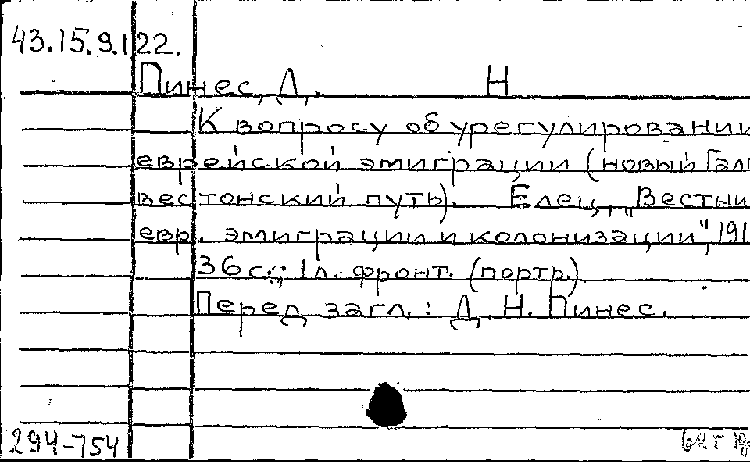 43.15.9.122.
Пинес, Д. Н
К вопросу об урегулировании
еврейской эмиграции (новый Гал
вестонский путь). Елец, „Вестни
евр. эмиграции и колонизации", 191
36 с.; 1 л. фронт. (портр.)
Перед загл.: Д. Н. Пинес.
294-754